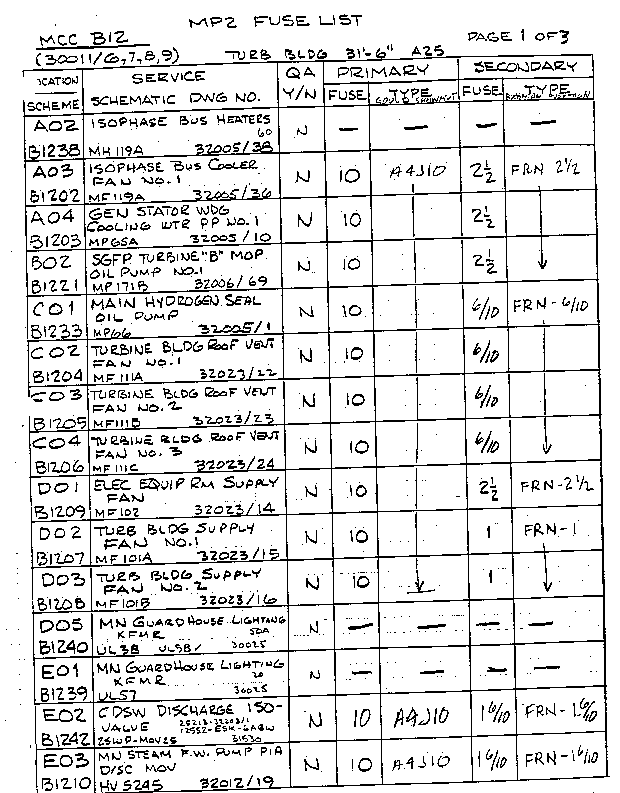 MP2 FUSE LIST
MCC B12
PAGE 1 OF 3
(30011/6,7,8,9) TURB BLDG 31'-6" A25
LOCATION SERVICE QA PRIMARY SECONDARY
SCHEME SCHEMATIC DWG NO. Y/N FUSE TYPE FUSE TYPE
A02 ISOPHASE BUS HEATERS
60 N — — — —
B1238 MH119A 32005/38
A03 ISOPHASE BUS COOLER
FAN NO.1 N 10 A4J10 2½ FRN 2½
B1202 MF119A 32005/36
A04 GEN STATOR WDG
COOLING WTR PP NO.1 N 10 2½
B1203 MP65A 32005/10
B02 SGFP TURBINE "B" MOP
OIL PUMP NO.1 N 10 2½
B1221 MP171B 32006/69
C01 MAIN HYDROGEN SEAL
OIL PUMP N 10 6/10 FRN-6/10
B1233 MP66 32005/1
C02 TURBINE BLDG ROOF VENT
FAN NO.1 N 10 6/10
B1204 MF111A 32023/22
C03 TURBINE BLDG ROOF VENT
FAN NO.2 N 10 6/10
B1205 MF111B 32023/23
C04 TURBINE BLDG ROOF VENT
FAN NO.3 N 10 6/10
B1206 MF111C 32023/24
D01 ELEC EQUIP RM SUPPLY
FAN N 10 2½ FRN-2½
B1209 MF102 32023/14
D02 TURB BLDG SUPPLY
FAN NO.1 N 10 1 FRN-1
B1207 MF101A 32023/15
D03 TURB BLDG SUPPLY
FAN NO.2 N 10 1
B1208 MF101B 32023/16
D05 MN GUARDHOUSE LIGHTING
XFMR N — — — —
B1240 UL38 UL58/ 30025
E01 MN GUARDHOUSE LIGHTING
XFMR 20 N — — — —
B1239 UL57 30025
E02 CDSW DISCHARGE ISO-
VALVE N 10 A4J10 1 6/10 FRN-1 6/10
B1242 2SWP-MOV25 31530
E03 MN STEAM F.W. PUMP P1A
DISC MOV N 10 A4J10 1 6/10 FRN-1 6/10
B1210 HV5245 32012/19